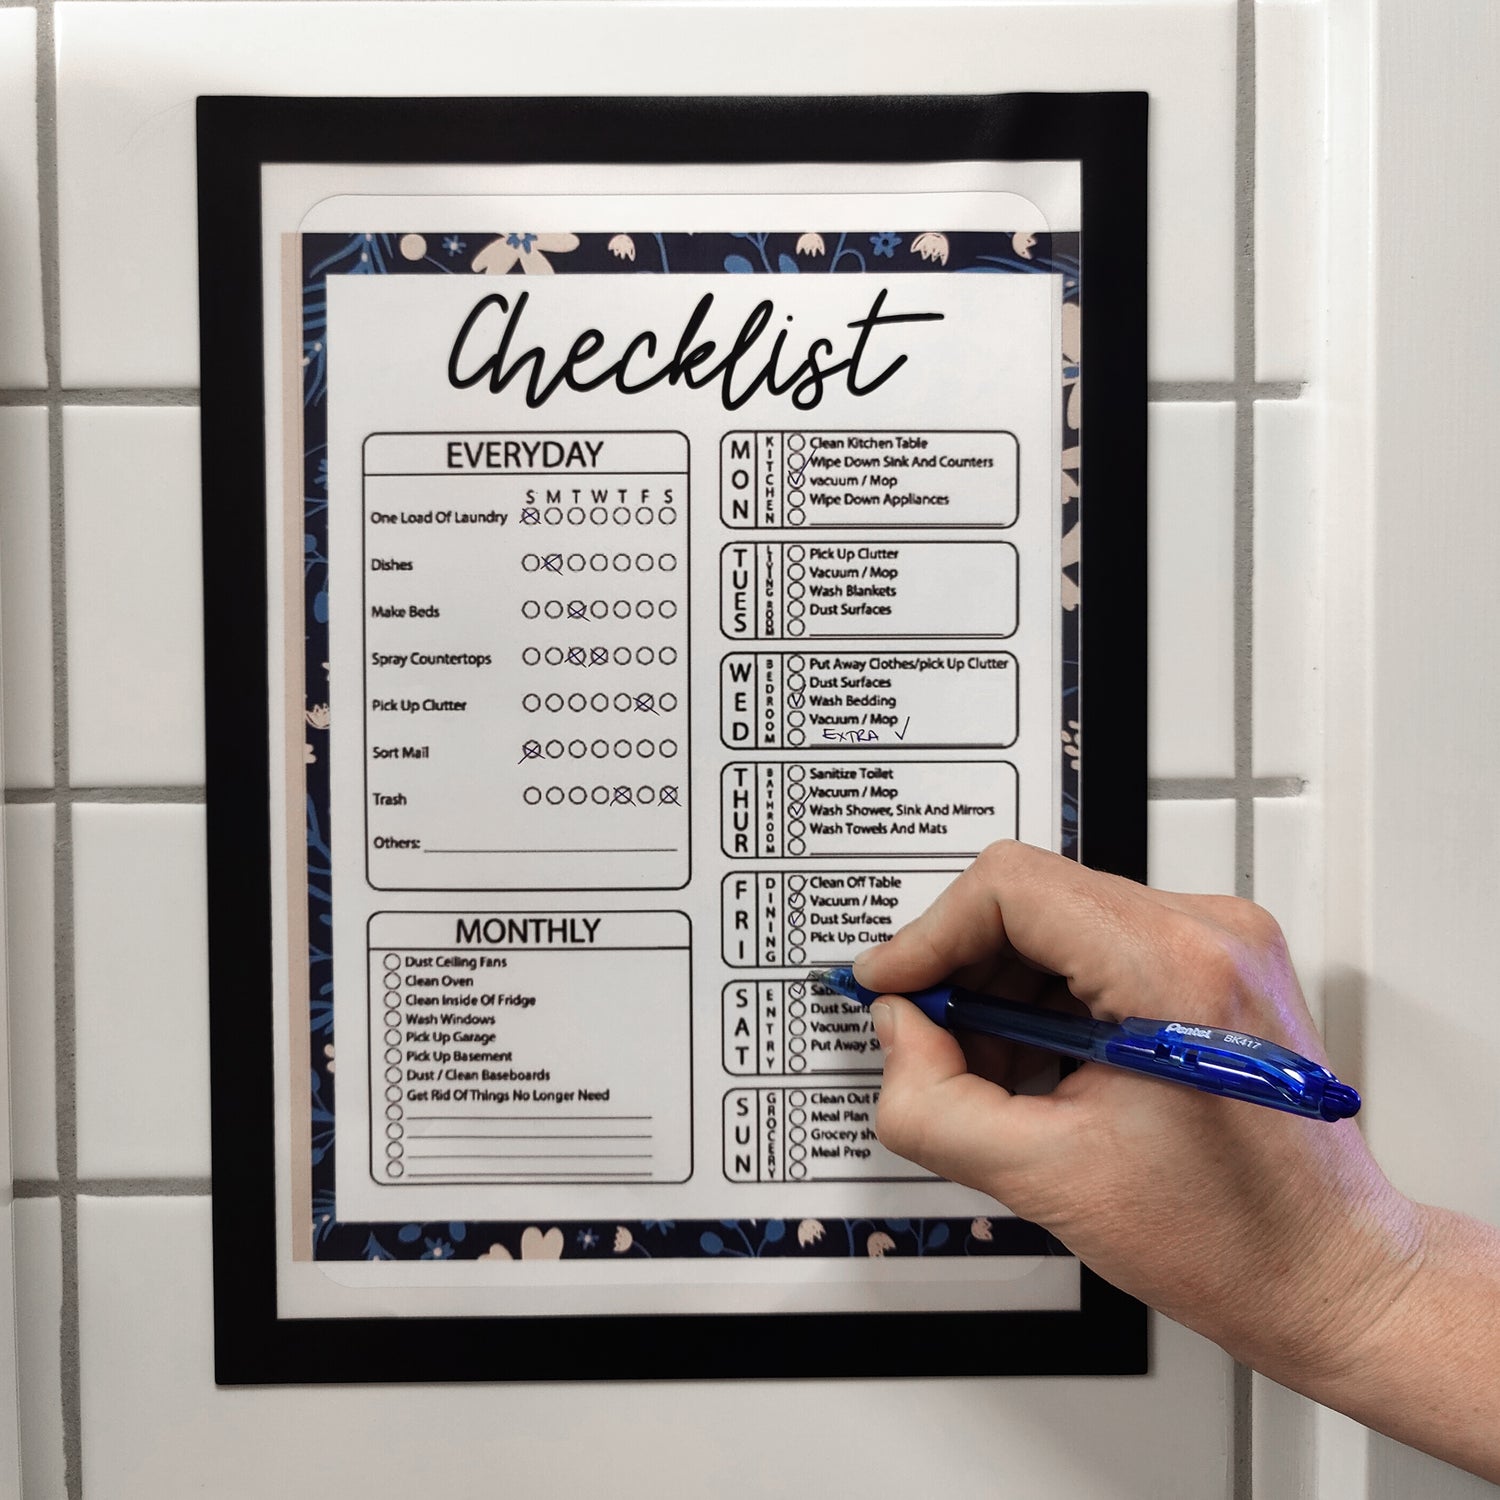 Checklist
EVERYDAY
S M T W T F S
One Load Of Laundry
Dishes
Make Beds
Spray Countertops
Pick Up Clutter
Sort Mail
Trash
Others:
MONTHLY
Dust Ceiling Fans
Clean Oven
Clean Inside Of Fridge
Wash Windows
Pick Up Garage
Pick Up Basement
Dust / Clean Baseboards
Get Rid Of Things No Longer Need
MON
KITCHEN
Clean Kitchen Table
Wipe Down Sink And Counters
vacuum / Mop
Wipe Down Appliances
TUES
LIVING ROOM
Pick Up Clutter
Vacuum / Mop
Wash Blankets
Dust Surfaces
WED
BEDROOM
Put Away Clothes/pick Up Clutter
Dust Surfaces
Wash Bedding
Vacuum / Mop
EXTRA
THUR
BATHROOM
Sanitize Toilet
Vacuum / Mop
Wash Shower, Sink And Mirrors
Wash Towels And Mats
FRI
DINING
Clean Off Table
Vacuum / Mop
Dust Surfaces
Pick Up
SAT
ENTRY
Dust
Vacuum /
Put Away
SUN
GROCERY
Clean Out
Meal Plan
Grocery
Meal Prep
Pentel BK417